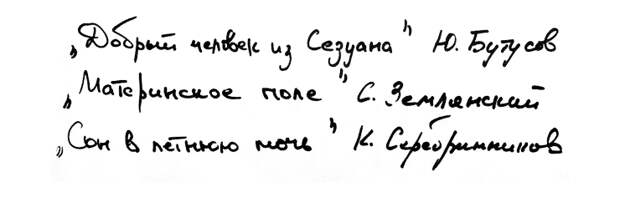 „Добрый человек из Сезуана" Ю. Бутусов
„Материнское поле" С. Землянский
„Сон в летнюю ночь" К. Серебринников